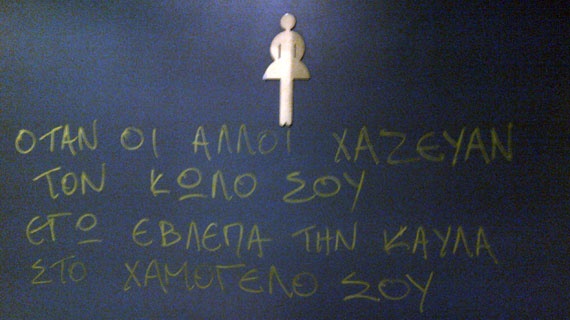 ΟΤΑΝ ΟΙ ΑΛΛΟΙ ΧΑΖΕΥΑΝ
ΤΟΝ ΚΩΛΟ ΣΟΥ
ΕΓΩ ΕΒΛΕΠΑ ΤΗΝ ΚΑΥΛΑ
ΣΤΟ ΧΑΜΟΓΕΛΟ ΣΟΥ